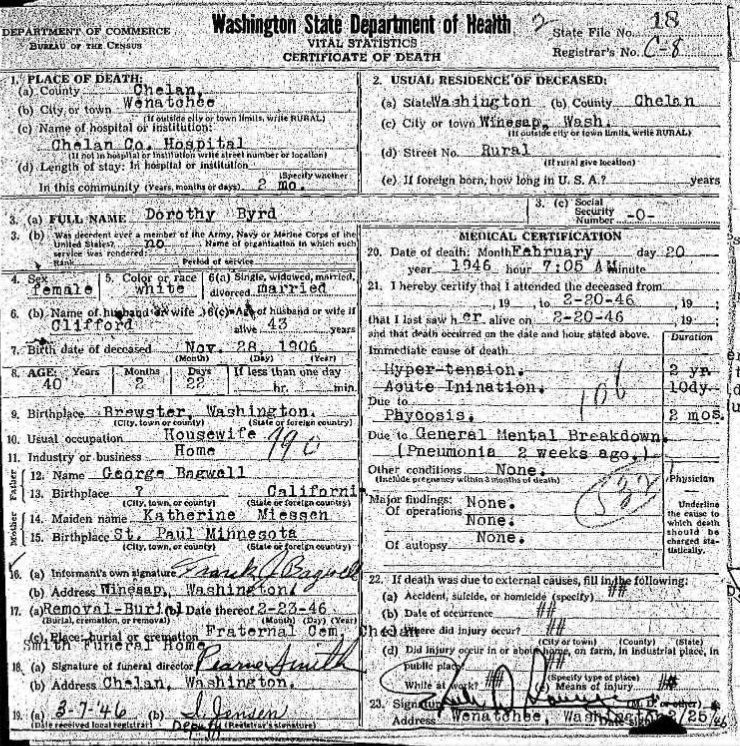 DEPARTMENT OF COMMERCE
BUREAU OF THE CENSUS
Washington State Department of Health
VITAL STATISTICS
CERTIFICATE OF DEATH
2
State File No. 18
Registrar's No. C-8
1. PLACE OF DEATH:
(a) County Chelan,
(b) City or town Wenatchee
(If outside city or town limits, write RURAL)
(c) Name of hospital or institution:
Chelan Co. Hospital
(If not in hospital or institution write street number or location)
(d) Length of stay: In hospital or institution
(Specify whether
In this community (years, months or days) 2 mo.
2. USUAL RESIDENCE OF DECEASED:
(a) State Washington (b) County Chelan
(c) City or town Winesap, Wash.
(If outside city or town limits, write RURAL)
(d) Street No. Rural
(If rural give location)
(e) If foreign born, how long in U. S. A.? years
3. (a) FULL NAME Dorothy Byrd
3. (b) Was decedent ever a member of the Army, Navy or Marine Corps of the
United States? no Name of organization in which such
service was rendered:
Rank Period of service
3. (c) Social
Security
Number -0-
4. Sex female
5. Color or race white
6(a) Single, widowed, married,
divorced married
6. (b) Name of husband or wife Clifford
6(c) Age of husband or wife if
alive 43 years
7. Birth date of deceased Nov. 28, 1906
(Month) (Day) (Year)
8. AGE: Years Months Days If less than one day
40 2 22 hr. min.
9. Birthplace Brewster, Washington.
(City, town or county) (State or foreign country)
10. Usual occupation Housewife
11. Industry or business Home
190
Father
12. Name George Bagwell
13. Birthplace ? California
(City, town, or county) (State or foreign country)
Mother
14. Maiden name Katherine Miessen
15. Birthplace St. Paul Minnesota
(City, town, or county) (State or foreign country)
16. (a) Informant's own signature Frank J. Bagwell
(b) Address Winesap, Washington.
17. (a) Removal-Burial (b) Date thereof 2-23-46
(Burial, cremation, or removal) (Month) (Day) (Year)
(c) Place: burial or cremation Fraternal Cem, Chelan
Smith Funeral Home
18. (a) Signature of funeral director Pearne Smith
(b) Address Chelan, Washington.
19. (a) 3-7-46 (b) S Jensen
(Date received local registrar) Deputy (Registrar's signature)
MEDICAL CERTIFICATION
20. Date of death: Month February day 20
year 1946 hour 7:05 A Minute
21. I hereby certify that I attended the deceased from
, 19 to 2-20-46 , 19 ;
that I last saw h er alive on 2-20-46 , 19 ;
and that death occurred on the date and hour stated above.
Duration
Immediate cause of death
Hyper-tension. 2 yr.
Acute Inination. 10dy.
Due to
Phycosis. 2 mos.
106
Due to General Mental Breakdown.
(Pneumonia 2 weeks ago.)
Other conditions None.
(Include pregnancy within 3 months of death)
532
Physician
Major findings:
Of operations None.
None.
Of autopsy None.
Underline
the cause to
which death
should be
charged sta-
tistically.
22. If death was due to external causes, fill in the following:
(a) Accident, suicide, or homicide (specify) ##
(b) Date of occurrence ##
(c) Where did injury occur? ##
(City or town) (County) (State)
(d) Did injury occur in or about home, on farm, in industrial place, in
public place ##
(Specify type of place)
While at work? ## (e) Means of injury ##
23. Signature (M. D. or other)
Address Wenatchee, Washington 2/25/46